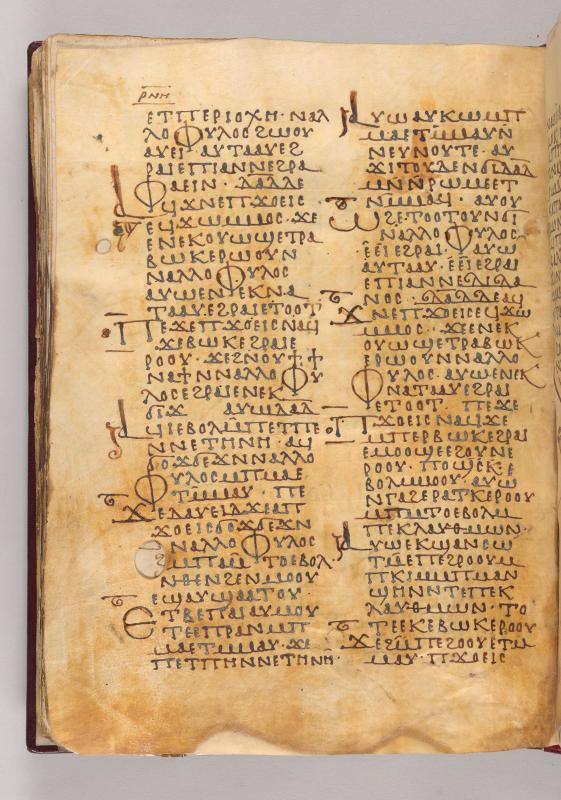 ⲣⲛⲏ
ⲉⲧⲡⲉⲣⲓⲟⲭⲏ· ⲛⲁⲗ
ⲗⲟⲫⲩⲗⲟⲥ ϩⲱⲟⲩ
ⲁⲩⲉⲓ· ⲁⲩⲧⲁⲁⲩⲉϩ
ⲣⲁⲓⲉⲡⲓⲁⲛⲛⲉϩⲣⲁ
ⲫⲁⲉⲓⲛ· ⲇⲁⲇⲇⲉ
ϥϫⲛⲉⲡϫⲟⲉⲓⲥ
ⲉϥϫⲱⲙⲙⲟⲥ· ϫⲉ
ⲉⲛⲉⲕⲟⲩⲱϣⲉⲧⲣⲁ
ⲃⲱⲕⲉⲣⲱⲟⲩⲛ
ⲛⲁⲗⲗⲟⲫⲩⲗⲟⲥ
ⲁⲩⲱⲉⲛⲉⲕⲛⲁ
ⲧⲁⲁⲩⲉϩⲣⲁⲓⲉⲧⲟⲟⲧ
ⲡⲉϫⲉⲡϫⲟⲉⲓⲥⲛⲁϥ
ϫⲉⲃⲱⲕⲉϩⲣⲁⲓⲉ
ⲣⲟⲟⲩ· ϫⲉϩⲛⲟⲩϯϯ
ⲛⲁϯⲛⲛⲁⲗⲗⲟⲫⲩ
ⲗⲟⲥⲉϩⲣⲁⲓⲉⲛⲉⲕ
ϭⲓϫ ⲁⲩⲱⲇⲁⲇ
ϥⲓⲉⲃⲟⲗⲙⲡⲉⲧⲡⲉ
ⲛⲛⲉⲧⲡⲏⲛⲏ· ⲁϥ
ϭⲟϫϭⲉϫⲛⲛⲁⲗⲗⲟ
ⲫⲩⲗⲟⲥⲙⲡⲙⲁⲉ
ⲧⲙⲙⲁⲩ· ⲡⲉ
ϫⲉⲇⲁⲩⲉⲓⲇϫⲉⲁⲡ
ϫⲟⲉⲓⲥϭⲉϫϭⲉϫⲛ
ⲛⲁⲗⲗⲟⲫⲩⲗⲟⲥ
ⲙⲡⲁⲙⲧⲟⲉⲃⲟⲗ·
ⲛⲑⲉⲛϩⲉⲛⲙⲟⲟⲩ
ⲉϣⲁⲩϣⲁⲁⲧⲟⲩ·
ⲉⲧⲃⲉⲡⲁⲓⲁⲩⲙⲟⲩ
ⲧⲉⲉⲡⲣⲁⲛⲙⲡ
ⲙⲁⲉⲧⲙⲙⲁⲩ· ϫⲉ
ⲡⲉⲧⲡⲏⲛⲛⲉⲧⲏⲛⲏ·
ⲁⲩⲱⲁⲩⲕⲱⲙⲡ
ⲙⲁⲉⲧⲙⲙⲁⲩⲛ
ⲛⲉⲩⲛⲟⲩⲧⲉ· ⲁⲩ
ϫⲓⲧⲟⲩⲇⲉⲛϭⲓⲇⲁⲇ
ⲙⲛⲛⲣⲱⲙⲉⲉⲧ
ⲛⲙⲙⲁϥ· ⲁⲩⲟⲩ
ⲱϩⲉⲧⲟⲟⲧⲟⲩⲛϭⲓ
ⲛⲁⲗⲗⲟⲫⲩⲗⲟⲥ·
ⲉⲉⲓⲉϩⲣⲁⲓ· ⲁⲩⲱ
ⲁⲩⲧⲁⲁⲩ· ⲉⲉⲓⲉϩⲣⲁⲓ
ⲉⲡⲓⲁⲛⲛⲉϭⲓϭⲁ
ⲛⲟⲥ· ⲇⲁⲇⲇⲉⲁϥ
ϫⲛⲉⲡϫⲟⲉⲓⲥⲉϥϫⲱ
ⲙⲙⲟⲥ· ϫⲉⲉⲛⲉⲕ
ⲟⲩⲱϣⲉⲧⲣⲁⲃⲱⲕ
ⲉⲣⲱⲟⲩⲛⲛⲁⲗⲗⲟ
ⲫⲩⲗⲟⲥ· ⲁⲩⲱⲉⲛⲉⲕ
ⲛⲁⲧⲁⲁⲩⲉϩⲣⲁⲓ
ⲉⲧⲟⲟⲧ· ⲡⲉϫⲉ
ⲡϫⲟⲉⲓⲥⲛⲁϥϫⲉ
ⲙⲡⲉⲣⲃⲱⲕⲉϩⲣⲁⲓ
ⲉⲙⲟⲟϣⲉⲉϩⲟⲩⲛⲉ
ⲣⲟⲟⲩ· ⲡⲟϣⲥⲕⲉ
ⲃⲟⲗⲙⲙⲟⲟⲩ· ⲁⲩⲱ
ⲛⲅⲁϩⲉⲣⲁⲧⲕⲉⲣⲟⲟⲩ
ⲙⲡⲙⲧⲟⲉⲃⲟⲗⲙ
ⲡⲉⲕⲗⲁⲩⲑⲙⲱⲛ·
ⲁⲩⲱⲉⲕϣⲁⲛⲥⲱ
ⲧⲙⲉⲡⲉϩⲣⲟⲟⲩⲙ
ⲡⲕⲓⲙⲙⲡⲙⲁⲛ
ϣⲏⲛⲛⲧⲉⲡⲉⲕ
ⲗⲁⲩⲑⲙⲱⲛ· ⲧⲟ
ⲧⲉⲉⲕⲉⲃⲱⲕⲉⲣⲟⲟⲩ
ϫⲉϩⲙⲡⲉϩⲟⲟⲩⲉⲧⲙ
ⲙⲁⲩ· ⲡϫⲟⲉⲓⲥ